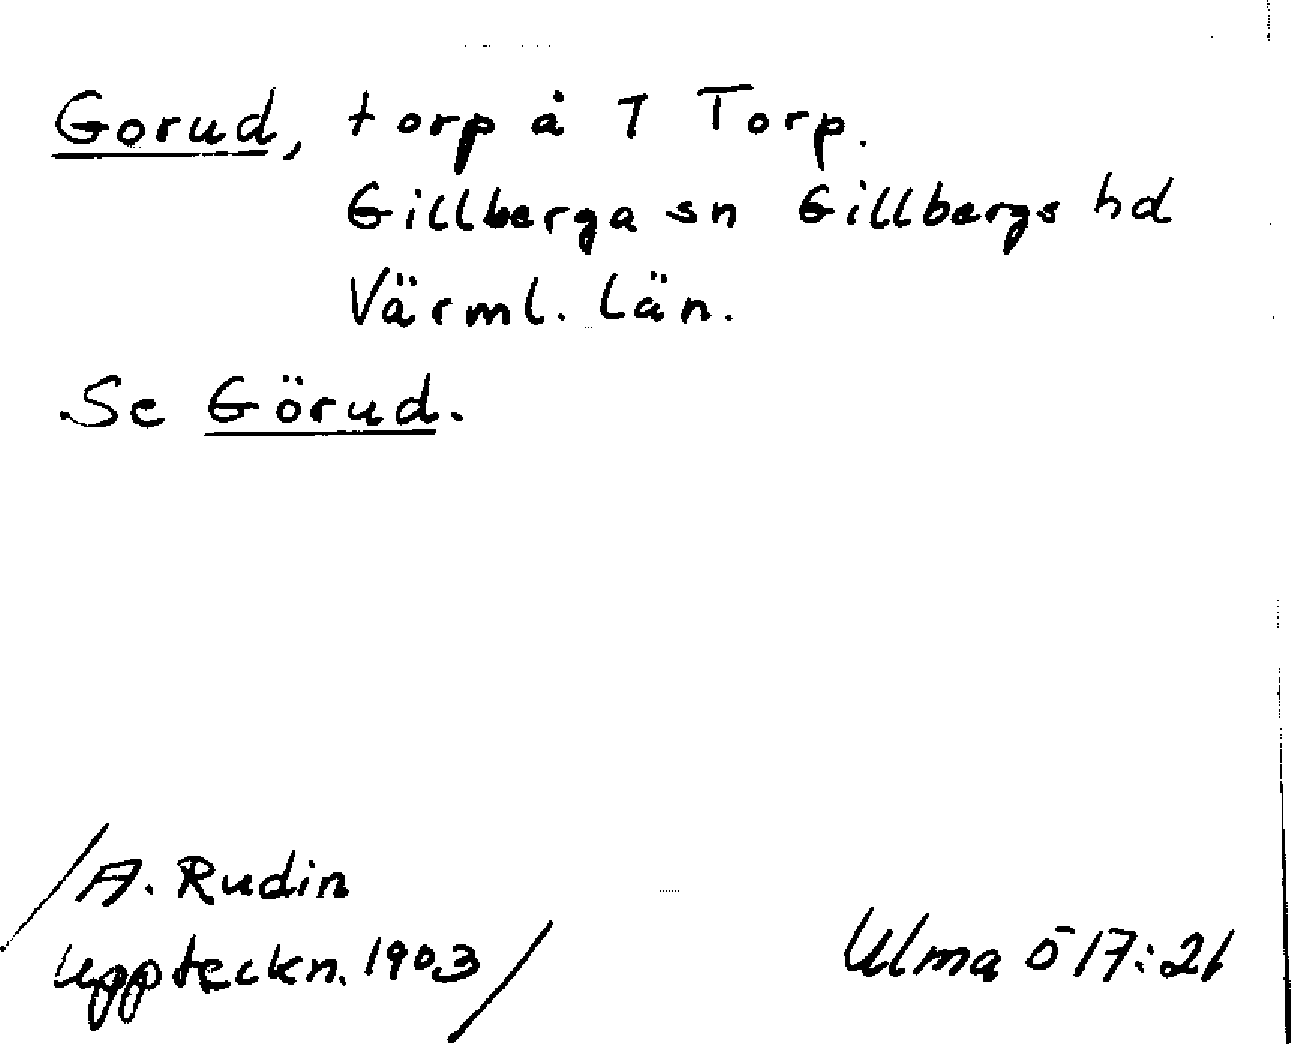 Gorud, torp å 1 Torp.
Gillberga sn Gillbergs hd
Värml. län.
Se Görud.
/A. Rudin
Uppteckn. 1903/
Ulma Ö 17:21